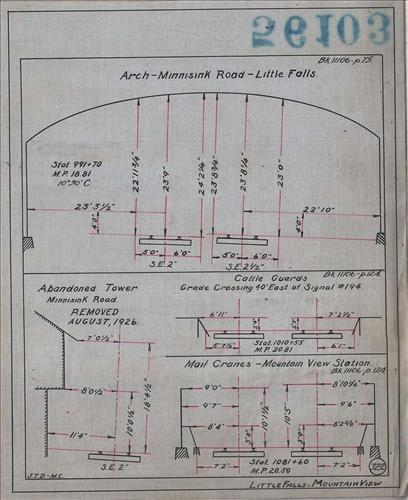 56103
Bk.11106-p.75.
Arch-Minnisink Road-Little Falls.
Stat. 991+70
M.P. 18.81
10°30'C
22'11¾"
23'9"
24'2¼"
23'8¾"
23'8¼"
23'0"
23'3½"
22'10"
4'0"
4'0"
5'0"
6'0"
5'0"
6'0"
S.E. 2"
S.E. 2½"
Abandoned Tower
Minnisink Road.
REMOVED
AUGUST, 1926.
7'0½"
8'0½"
18'4½"
10'0½"
11'4"
S.E. 2"
J.T.D-M.C.
Bk.11106-p.124.
Cattle Guards
Grade Crossing 40' East of Signal #194.
6'11"
7'2½"
5'7½"
Stat. 1010+55
M.P. 20.81
6'1"
Mail Cranes-Mountain View Station.
Bk.11106, p.124.
9'0"
8'10¼"
9'7"
9'6"
8'4"
10'1½"
10'5"
3'8"
3'9"
7'2"
Stat. 1081+60
M.P. 20.50
7'2"
322
LITTLE FALLS-MOUNTAIN VIEW